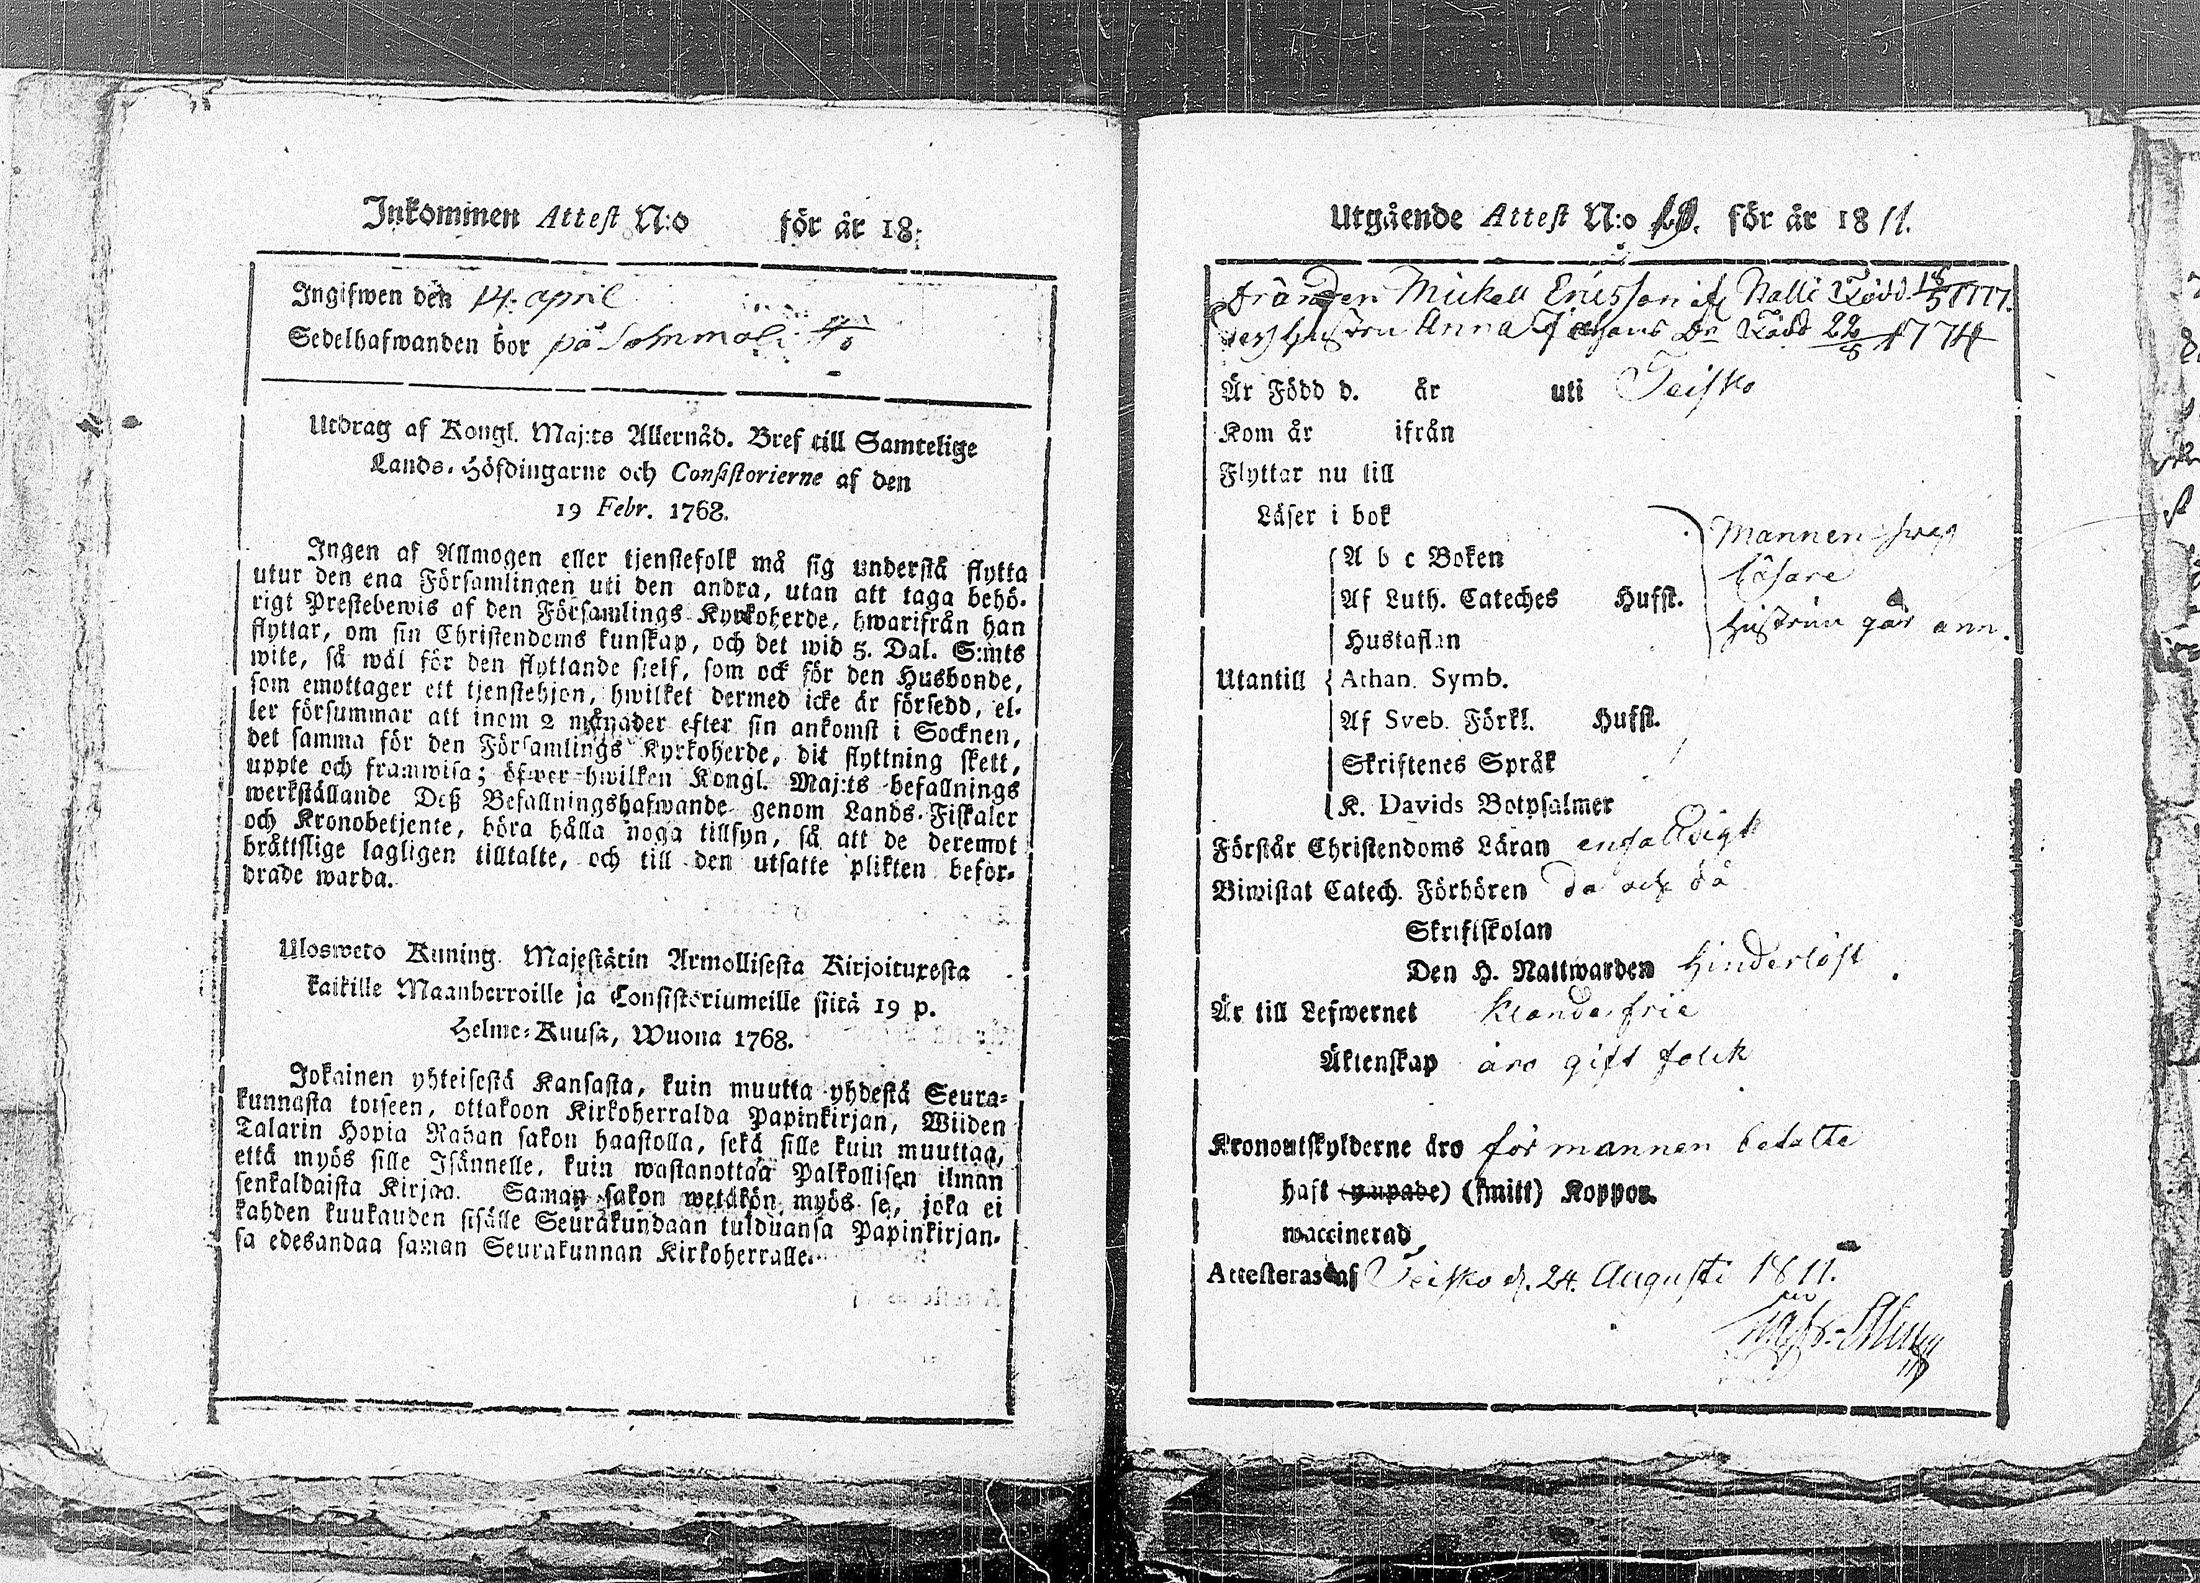 Inkommen Attest N:o för år 18
Ingifwen den 14. april
Sedelhafwanden bor på
Utdrag af Kongl. Maj:ts Allernåd. Bref till Samtelige
Lands-Höfdingarne och Consistorierne af den
19 Febr. 1768.
Ingen af Allmogen eller tjenstefolk må sig understå flytta
utur den ena Församlingen uti den andra, utan att taga behö-
rigt Prestebewis af den Församlings Kyrkoherde, hwarifrån han
flyttar, om sin Christendoms kunskap, och det wid 5. Dal. S:mts
wite, så wäl för den flyttande sjelf, som ock för den Husbonde,
som emottager ett tjenstehjon, hwilket dermed icke är försedd, el-
ler försummar att inom 2 månader efter sin ankomst i Socknen,
det samma för den Församlings Kyrkoherde, dit flyttning skett,
uppte och framwisa; öfwer hwilken Kongl. Maj:ts befallnings
werkställande Deß Befallningshafwande genom Lands-Fiskaler
och Kronobetjente, böra hålla noga tillsyn, så att de deremot
bråttslige lagligen tilltalte, och till den utsatte plikten befor-
drade warda.
Ulosweto Kuning. Majestätin Armollisesta Kirjoituxesta
kaikille Maanherroille ja Consistoriumeille siitä 19 p.
Helme-Kuusa, Wuona 1768.
Jokainen yhteisestä Kansasta, kuin muutta yhdestä Seura-
kunnasta toiseen, ottakoon Kirkoherralda Papinkirjan, Wiiden
Talarin Hopia Rahan sakon haastolla, sekä sille kuin muuttaa,
että myös sille Isännelle, kuin wastanottaa Palkollisen ilman
senkaldaista Kirjaa. Saman sakon wetäkön myös se, joka ei
kahden kuukauden sisälle Seurakundaan tulduansa Papinkirjan-
sa edesandaa saman Seurakunnan Kirkoherralle.
Utgående Attest N:o för år 1811.
Drängen Mickell Ericsson Född 18/5 1777.
Hustru Anna Född 1774
Är Född d. år uti Teisko
Kom år ifrån
Flyttar nu till
Läser i bok
A b c Boken
Af Luth. Cateches Hufst.
Hustaflan
Utantill Athan. Symb.
Af Sveb. Förkl. Hufst.
Skriftenes Språk
K. Davids Botpsalmer
Mannen swag
läsare
Hustrun går ann.
Förstår Christendoms Läran enfalldigt
Biwistat Catech. Förhören då och då
Skriftskolan
Den H. Nattwarden hinderlöst
Är till Lefwernet klanderfrie
Äktenskap äro gift folck
Kronoutskylderne äro för mannen betalte
haft (ympade) (smitt) Koppor.
waccinerad
Attesteras af Teisko d. 24. Augusti 1811.